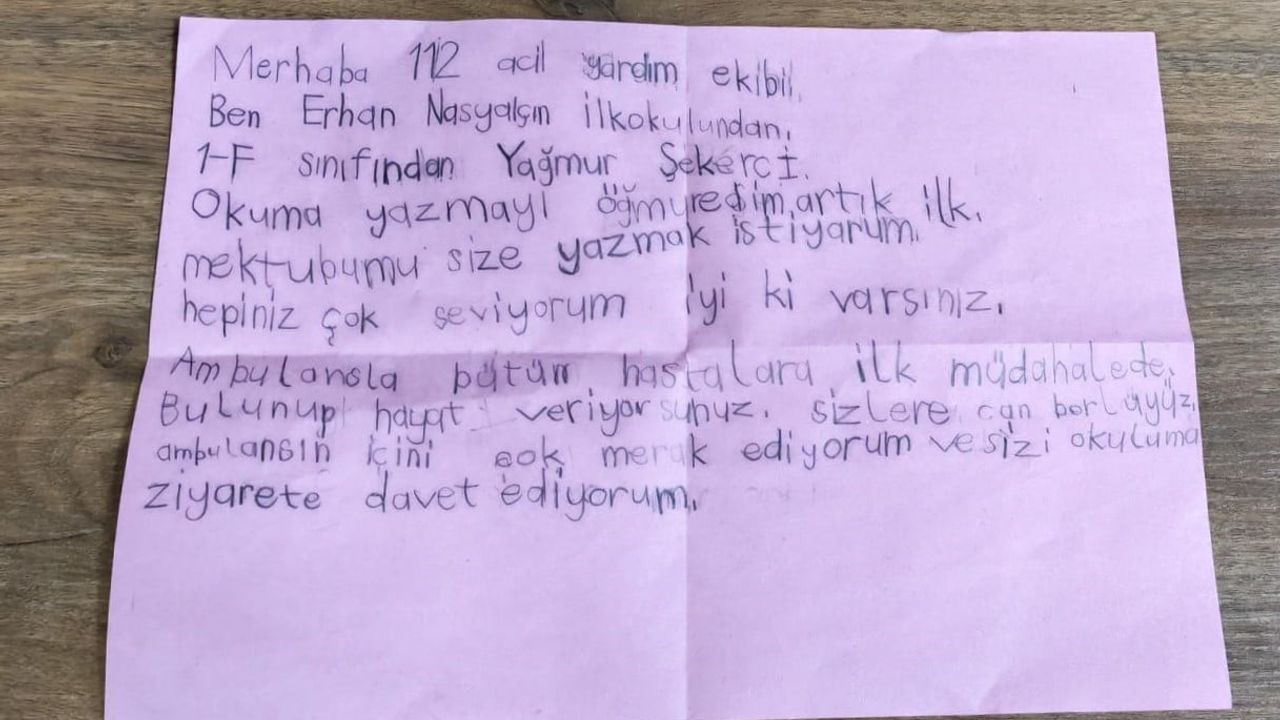 Merhaba 112 acil yardım ekibi.
Ben Erhan Nasyalçın ilkokulundan.
1-F sınıfından Yağmur Şekerci.
Okuma yazmayı öğmyredim, artık ilk.
mektubumu size yazmak istiyarum.
hepiniz çok seviyorum iyi ki varsınız.
Ambulansla bütün hastalara ilk müdahalede.
Bulunup hayat veriyorsunuz. sizlere can borluyüz.
ambulansın içini çok merak ediyorum ve sizi okuluma
ziyarete davet ediyorum.